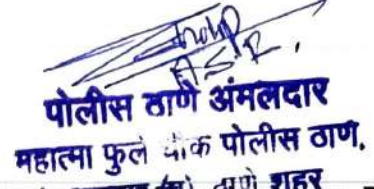 पोलीस ठाणे अंमलदार
महात्मा फुले चौक पोलीस ठाणे,
ठाणे शहर